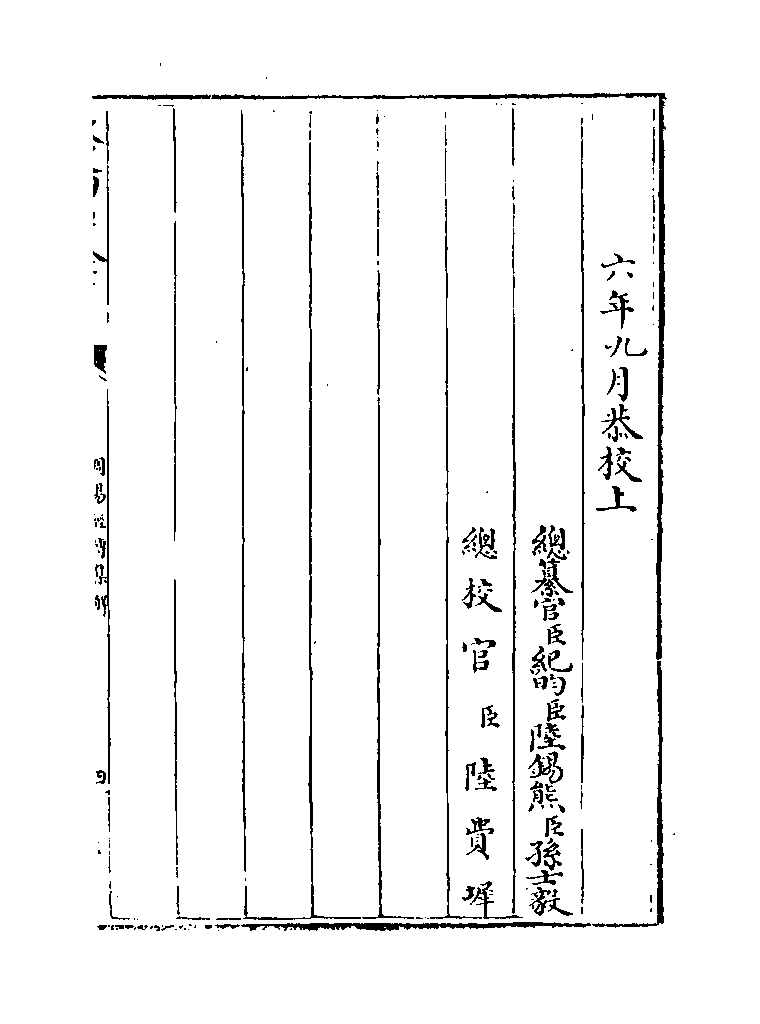 六年九月恭校上
總纂官臣紀昀臣陸錫熊臣孫士毅
總校官臣陸費墀
周易經傳集解
四